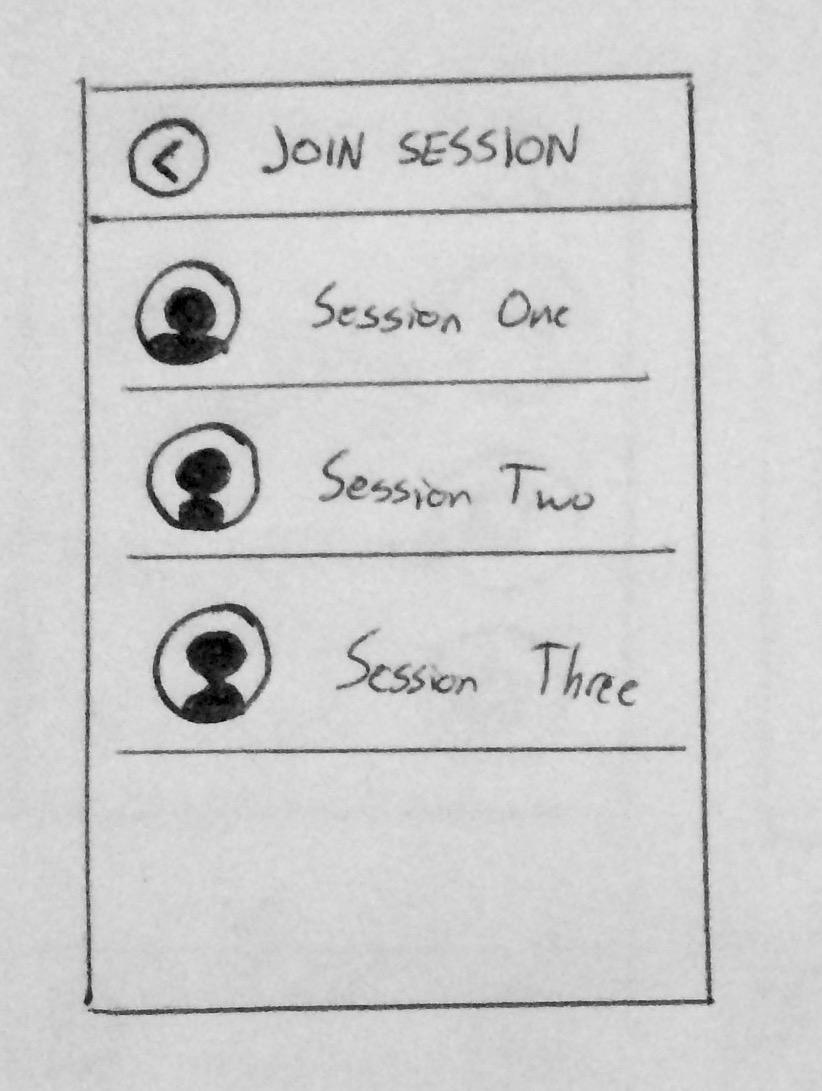 JOIN SESSION
Session One
Session Two
Session Three